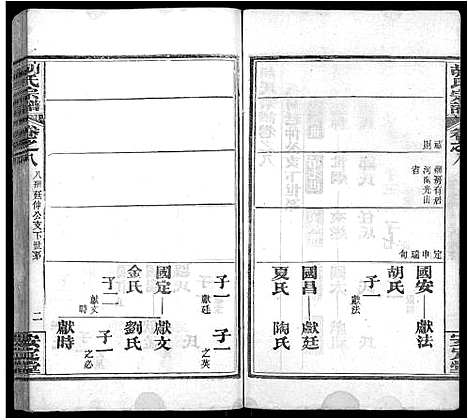 胡氏宗譜
卷之八
定 申 瑞 句
國安
獻法
胡氏
子一
獻法
國昌
獻廷
夏氏
陶氏
子一
獻廷
子一
之英
國定
獻文
金氏
劉氏
子二
獻文
獻時
子一
之必
獻時
胡氏宗譜
卷之八
八房廷仲公支下世系
二
安定堂